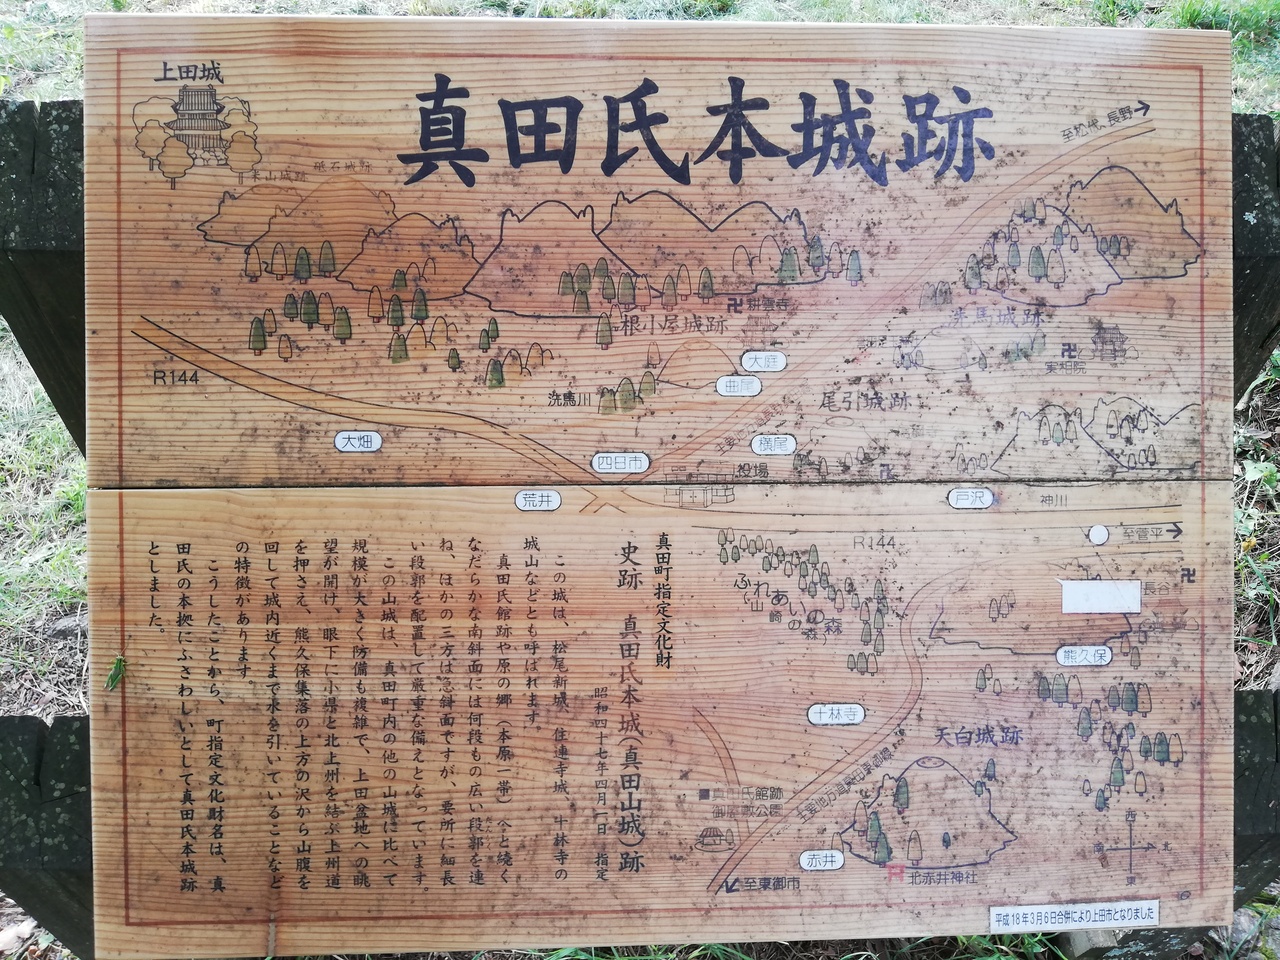 真田氏本城跡
上田城
米山城跡
砥石城跡
至松代、長野
根小屋城跡
卍耕雲寺
洗馬城跡
卍
東相院
大庭
曲尾
R144
洗馬川
尾引城跡
大畑
四日市
横尾
役場
卍
荒井
戸沢
神川
R144
至菅平
卍
長谷寺
ふれあいの森
熊久保
十林寺
天白城跡
主要地方道真田東部線
御屋敷公園
赤井
北赤井神社
至東御市
西
南
北
東
真田町指定文化財
史跡 真田氏本城(真田山城)跡
昭和四十七年四月一日 指定
この城は、松尾新城、住連寺城、十林寺の
城山などとも呼ばれます。
真田氏館跡や原の郷(本原一帯)へと続く
なだらかな南斜面には何段もの広い段郭を連
ね、ほかの三方は急斜面ですが、要所に細長
い段郭を配置して厳重な備えとなっています。
この山城は、真田町内の他の山城に比べて
規模が大きく防備も複雑で、上田盆地への眺
望が開け、眼下に小県と北上州を結ぶ上州道
を押さえ、熊久保集落の上方の沢から山腹を
回して城内近くまで水を引いていることなど
の特徴があります。
こうしたことから、町指定文化財名は、真
田氏の本拠にふさわしいとして真田氏本城跡
としました。
平成18年3月6日合併により上田市となりました